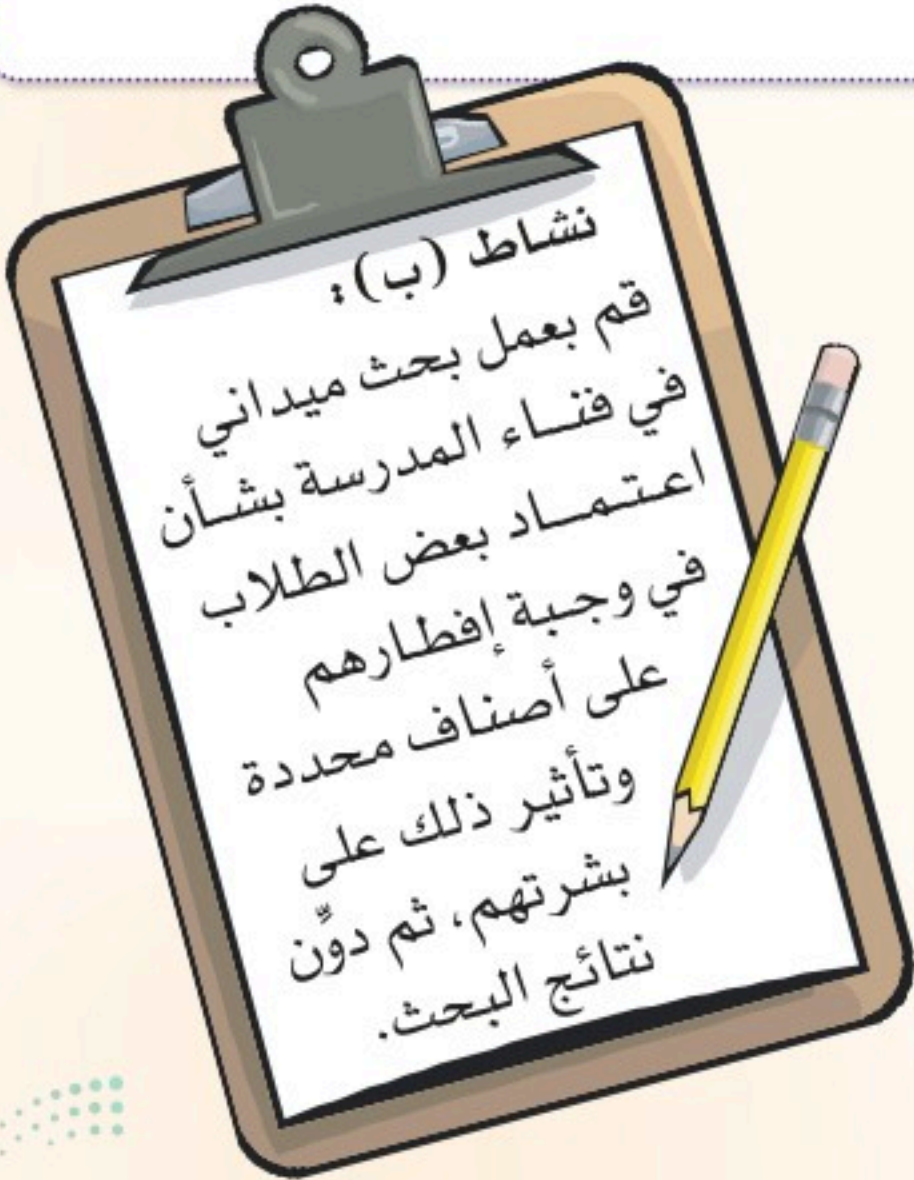 نشاط (ب):
قم بعمل بحث ميداني
في فنــاء المدرسة بشــأن
اعـتـمــاد بعض الطلاب
في وجـبـة إفطـارهم
على أصناف محددة
وتأثير ذلك على
بشرتهم، ثم دوِّن
نتائج البحث.